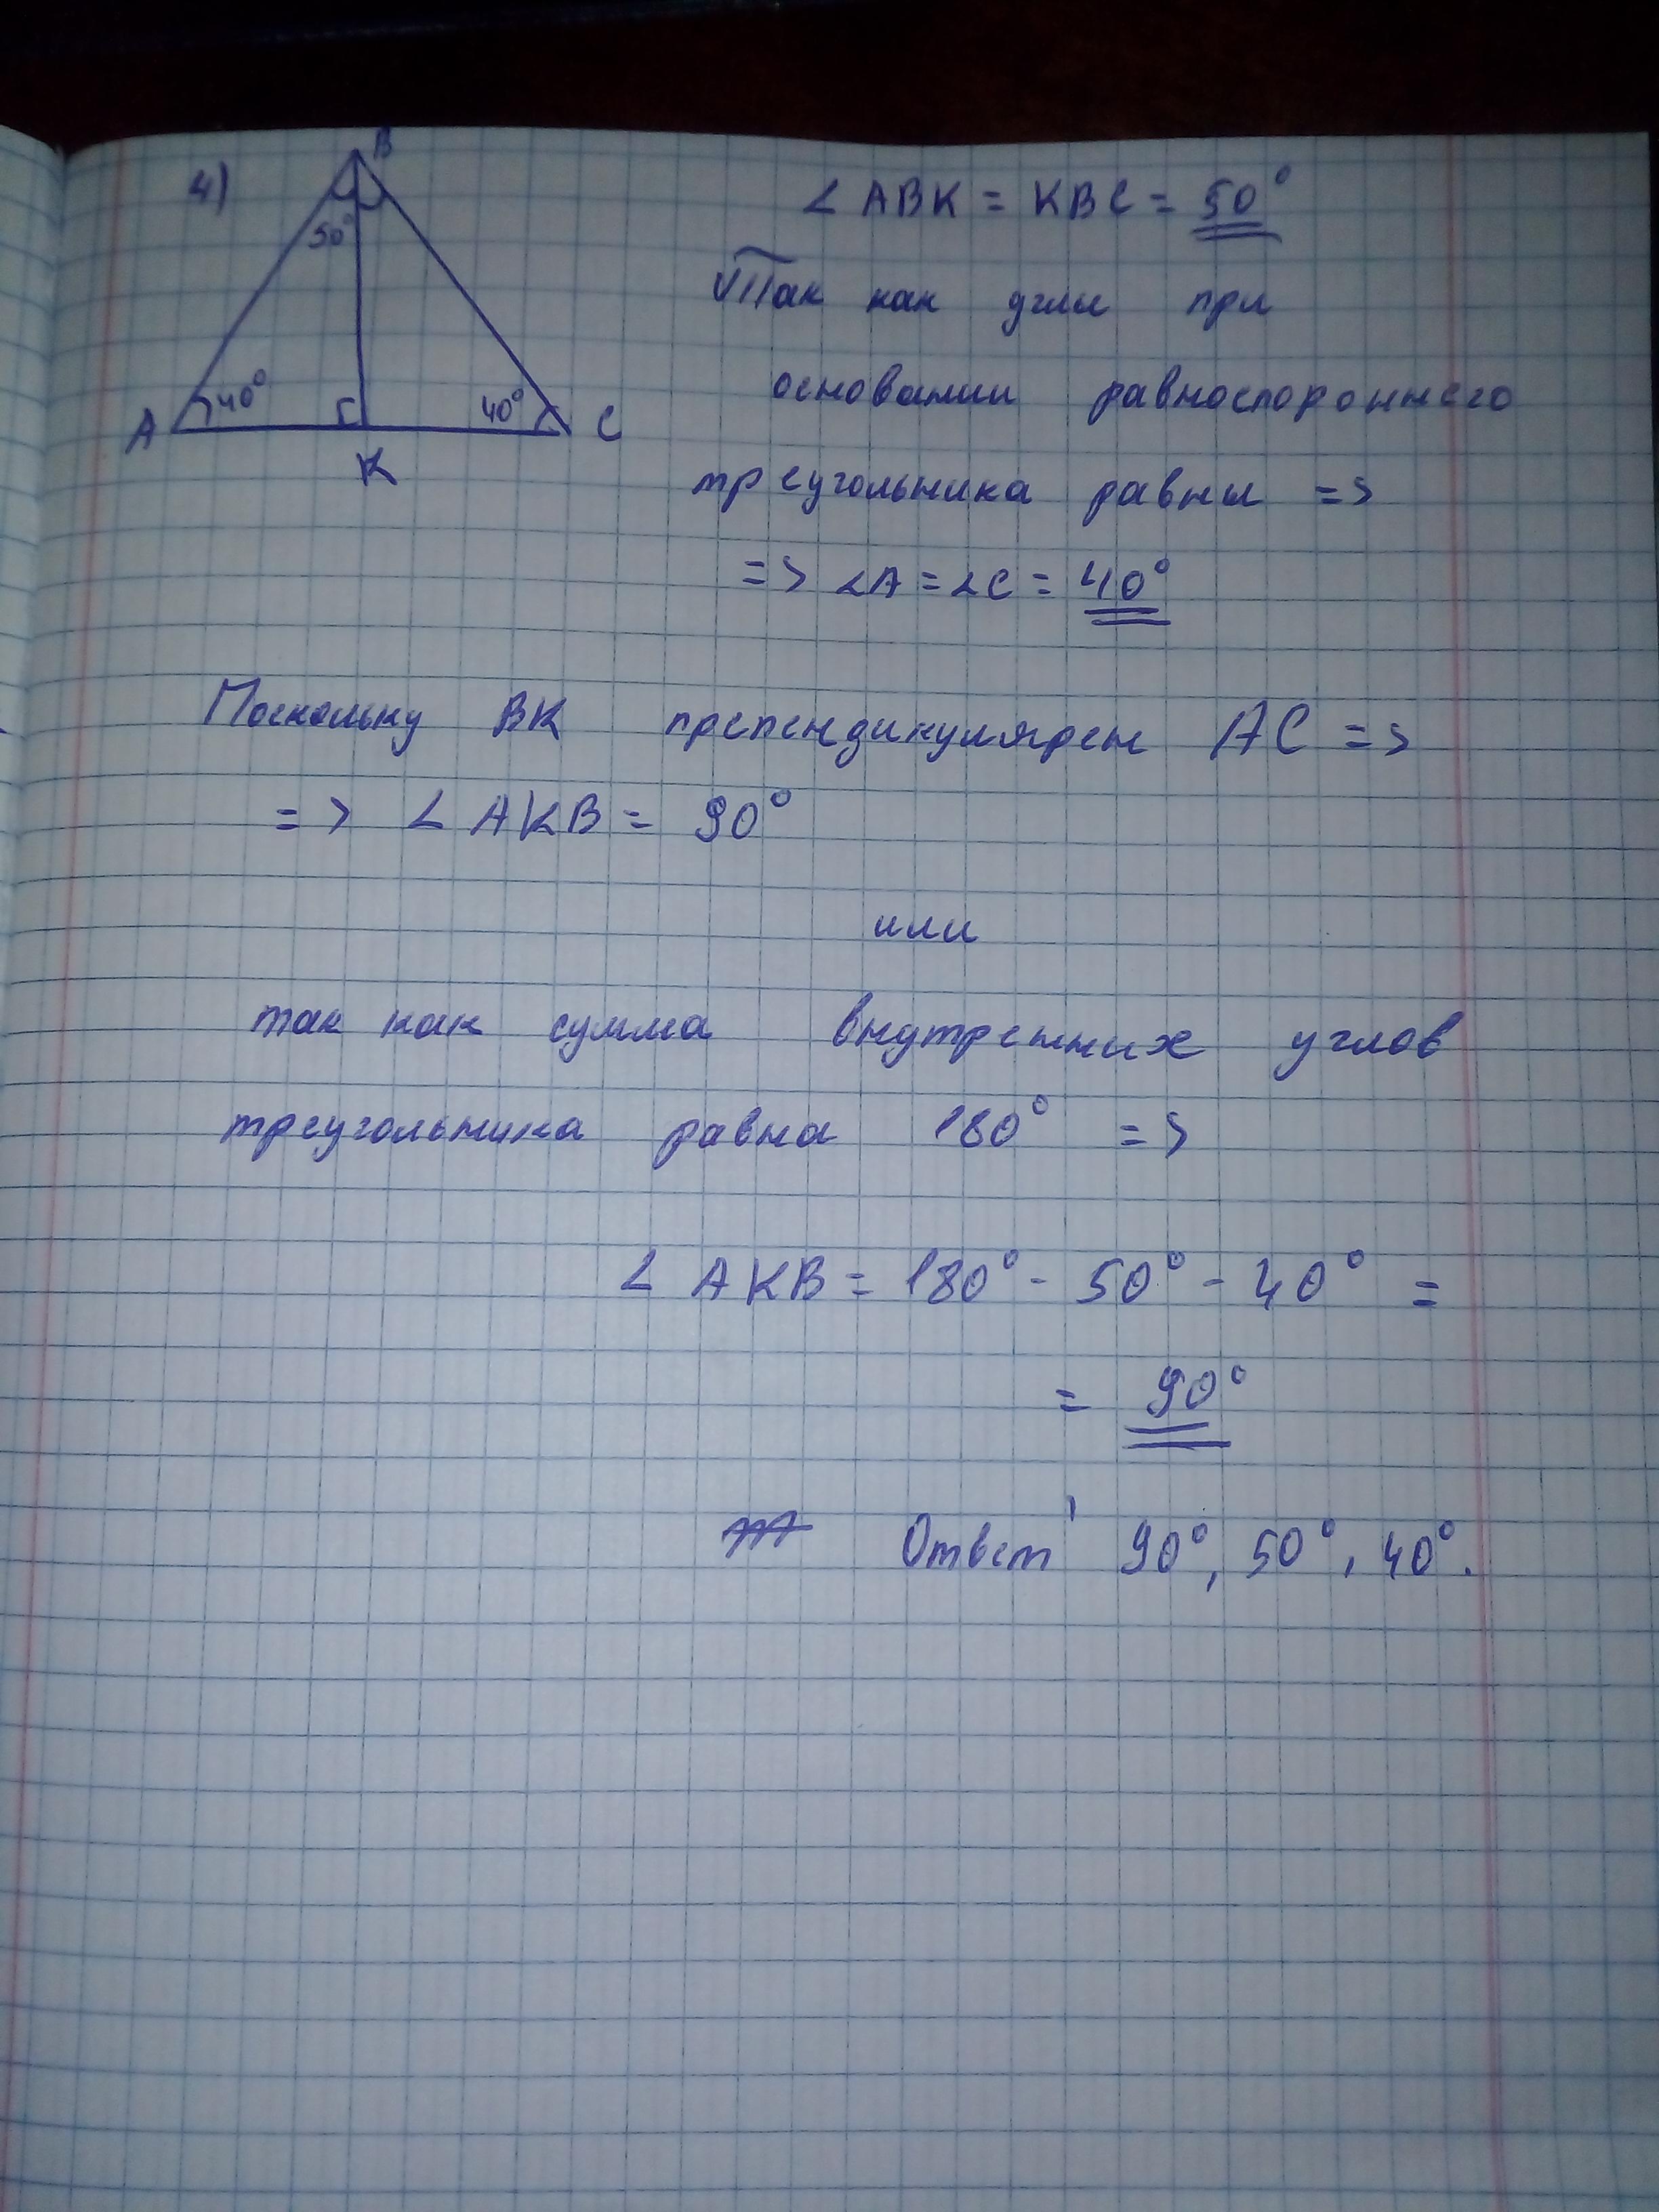 4)
B
50°
A
40°
40°
C
K
∠ ABK = KBC = 50°
Так как углы при
основании равностороннего
треугольника равны =>
=> ∠A = ∠C = 40°
Поскольку BK препендикулярен AC =>
=> ∠ AKB = 90°
или
так как сумма внутренних углов
треугольника равна 180° =>
∠ AKB = 180° - 50° - 40° =
= 90°
Ответ 90°, 50°, 40°.